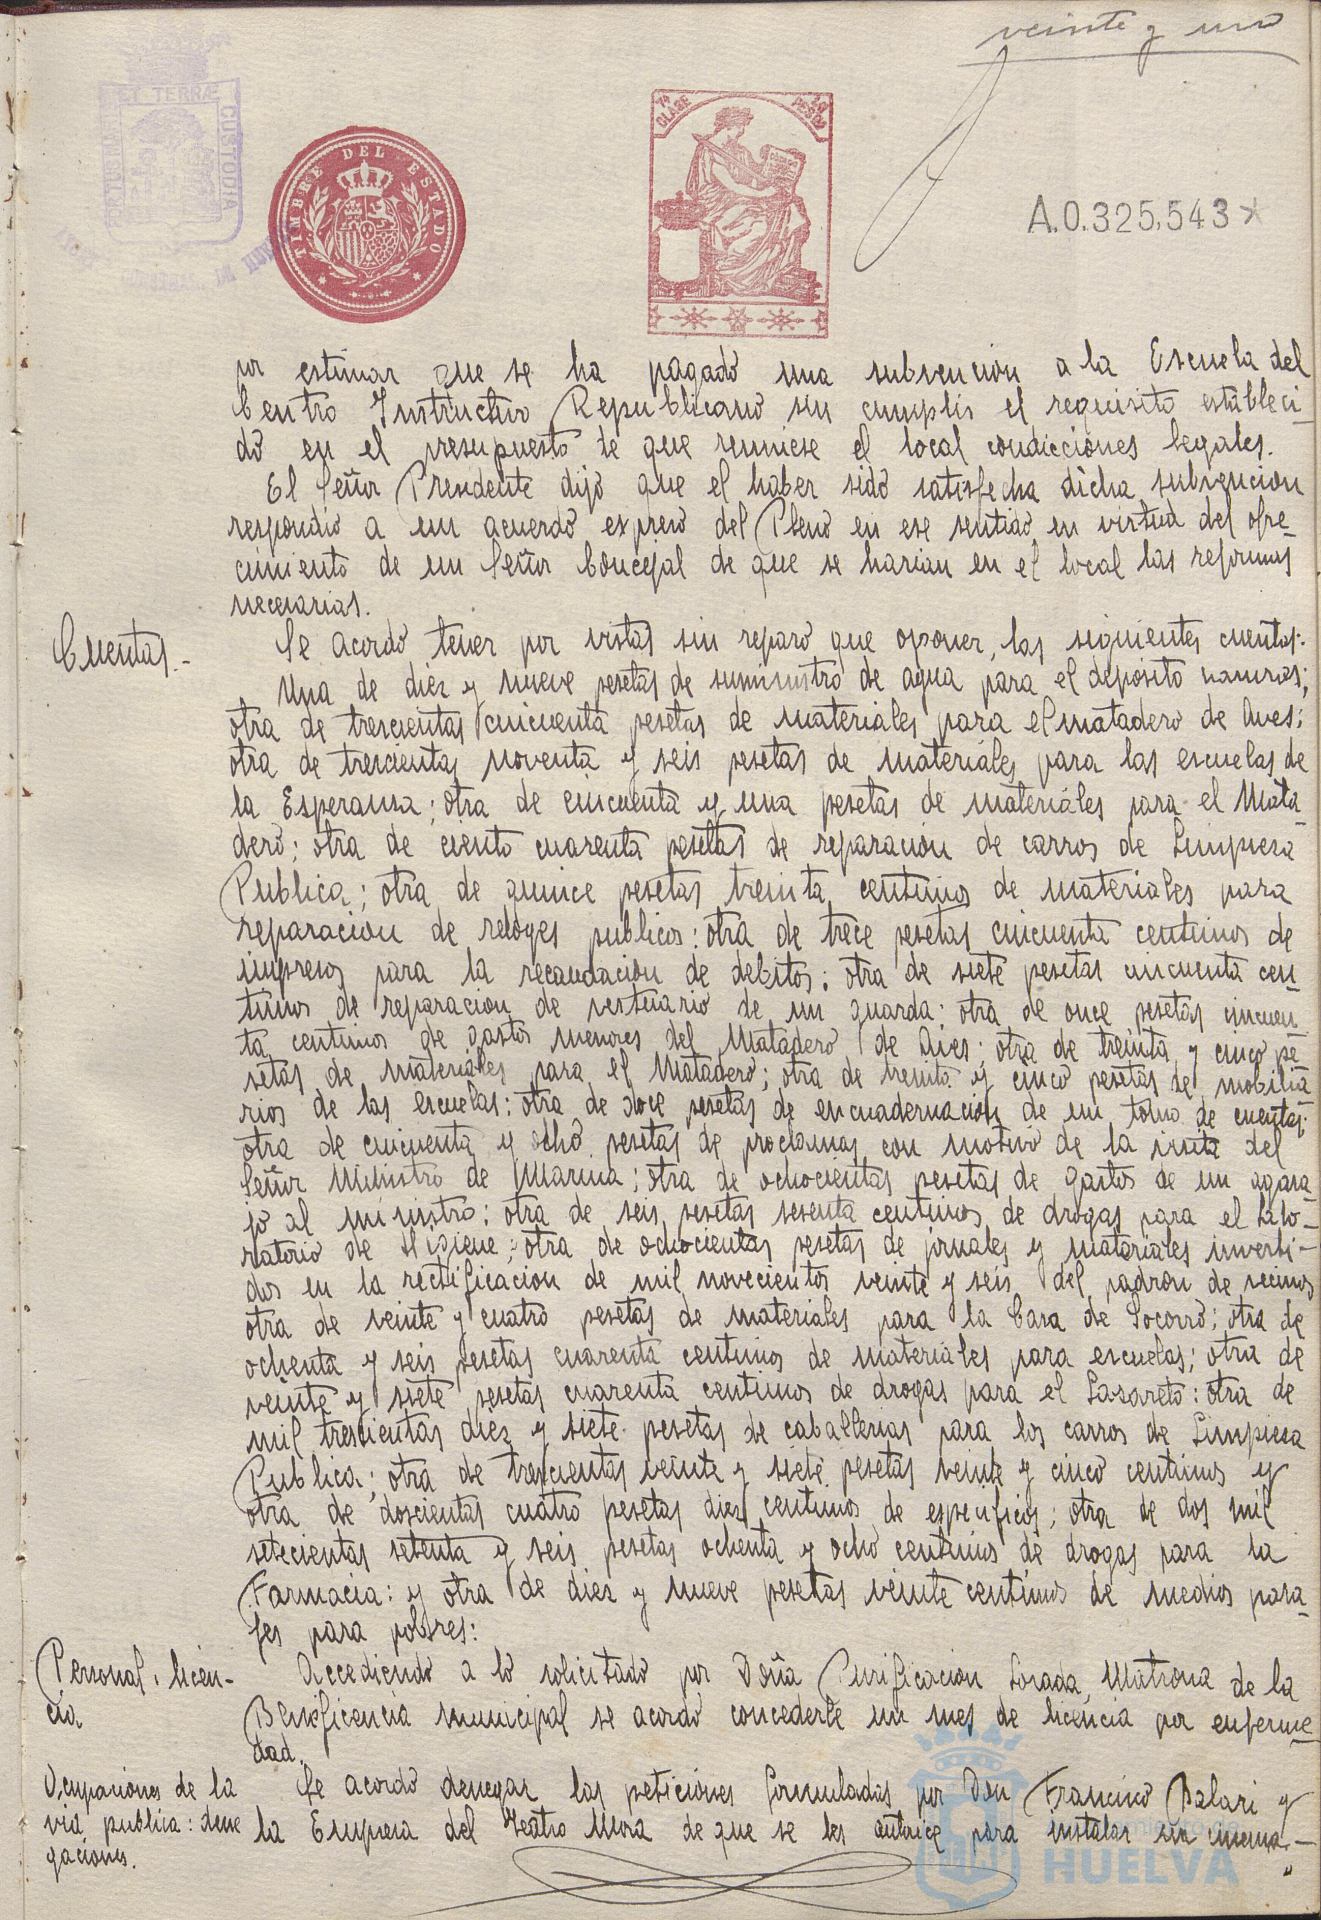 veinte y uno
ET TERRÆ
PORTUS MARIS
CUSTODIA
TIMBRE DEL ESTADO
7ª CLASE
10 PESETAS
A.0.325.543*
por estimar que se ha pagado una subvención a la Escuela del
Centro Instructivo Republicano sin cumplir el requisito estableci-
do en el presupuesto de que reuniese el local condicciones legales.
El Señor Presidente dijo que el haber sido satisfecha dicha subvencion
respondio a un acuerdo expreso del Pleno en ese sentido en virtud del ofre-
cimiento de un Señor Concejal de que se harian en el local las reformas
necesarias.
Cuentas.-
Se acordo tener por vistas sin reparo que oponer, las siguientes cuentas:
Una de diez y nueve pesetas de suministro de agua para el deposito
otra de trescientas cincuenta pesetas de materiales para el matadero de Aves;
otra de trescientas noventa y seis pesetas de materiales para las escuelas de
la Esperanza; otra de cincuenta y una pesetas de materiales para el Mata-
dero; otra de ciento cuarenta pesetas de reparacion de carros de Limpieza
Publica; otra de quince pesetas treinta centimos de materiales para
reparacion de reloges publicos: otra de trece pesetas cincuenta centimos de
impresos para la recaudacion de debitos; otra de siete pesetas cincuenta cen-
timos de reparacion de vestuario de un guarda: otra de once pesetas cincuen-
ta centimos de gastos menores del Matadero de Aves; otra de treinta y cinco pe-
setas de materiales para el Matadero; otra de treinta y cinco pesetas de mobilia-
rios de las escuelas: otra de doce pesetas de encuadernacion de un tomo de cuentas;
otra de cincuenta y ocho pesetas de proclamas con motivo de la visita del
Señor Ministro de Marina; otra de ochocientas pesetas de gastos de un agasa-
jo al ministro; otra de seis pesetas sesenta centimos de drogas para el Labo-
ratorio de Higiene; otra de ochocientas pesetas de jornales y materiales inverti-
dos en la rectificacion de mil novecientos veinte y seis del padron de vecinos
otra de veinte y cuatro pesetas de materiales para la Casa de Socorro; otra de
ochenta y seis pesetas cuarenta centimos de materiales para escuelas; otra de
veinte y siete pesetas cuarenta centimos de drogas para el Lazareto: otra de
mil trescientas diez y siete pesetas de caballerias para los carros de Limpieza
Publica; otra de trescientas veinte y siete pesetas veinte y cinco centimos y
otra de doscientas cuatro pesetas diez centimos de especificos; otra de dos mil
setecientas setenta y seis pesetas ochenta y ocho centimos de drogas para la
Farmacia: y otra de diez y nueve pesetas veinte centimos de medios pasa-
jes para pobres:
Personal, licen-
cia.
Accediendo a lo solicitado por Doña Purificacion Losada, Matrona de la
Beneficencia municipal se acordo concederle un mes de licencia por enferme-
dad.
Ocupaciones de la
via publica: dene
gaciones.
Se acordo denegar las peticiones formuladas por Don Francisco Balari y
la Empresa del Teatro Mora de que se les autorice para instalar sin
Ayuntamiento de
HUELVA